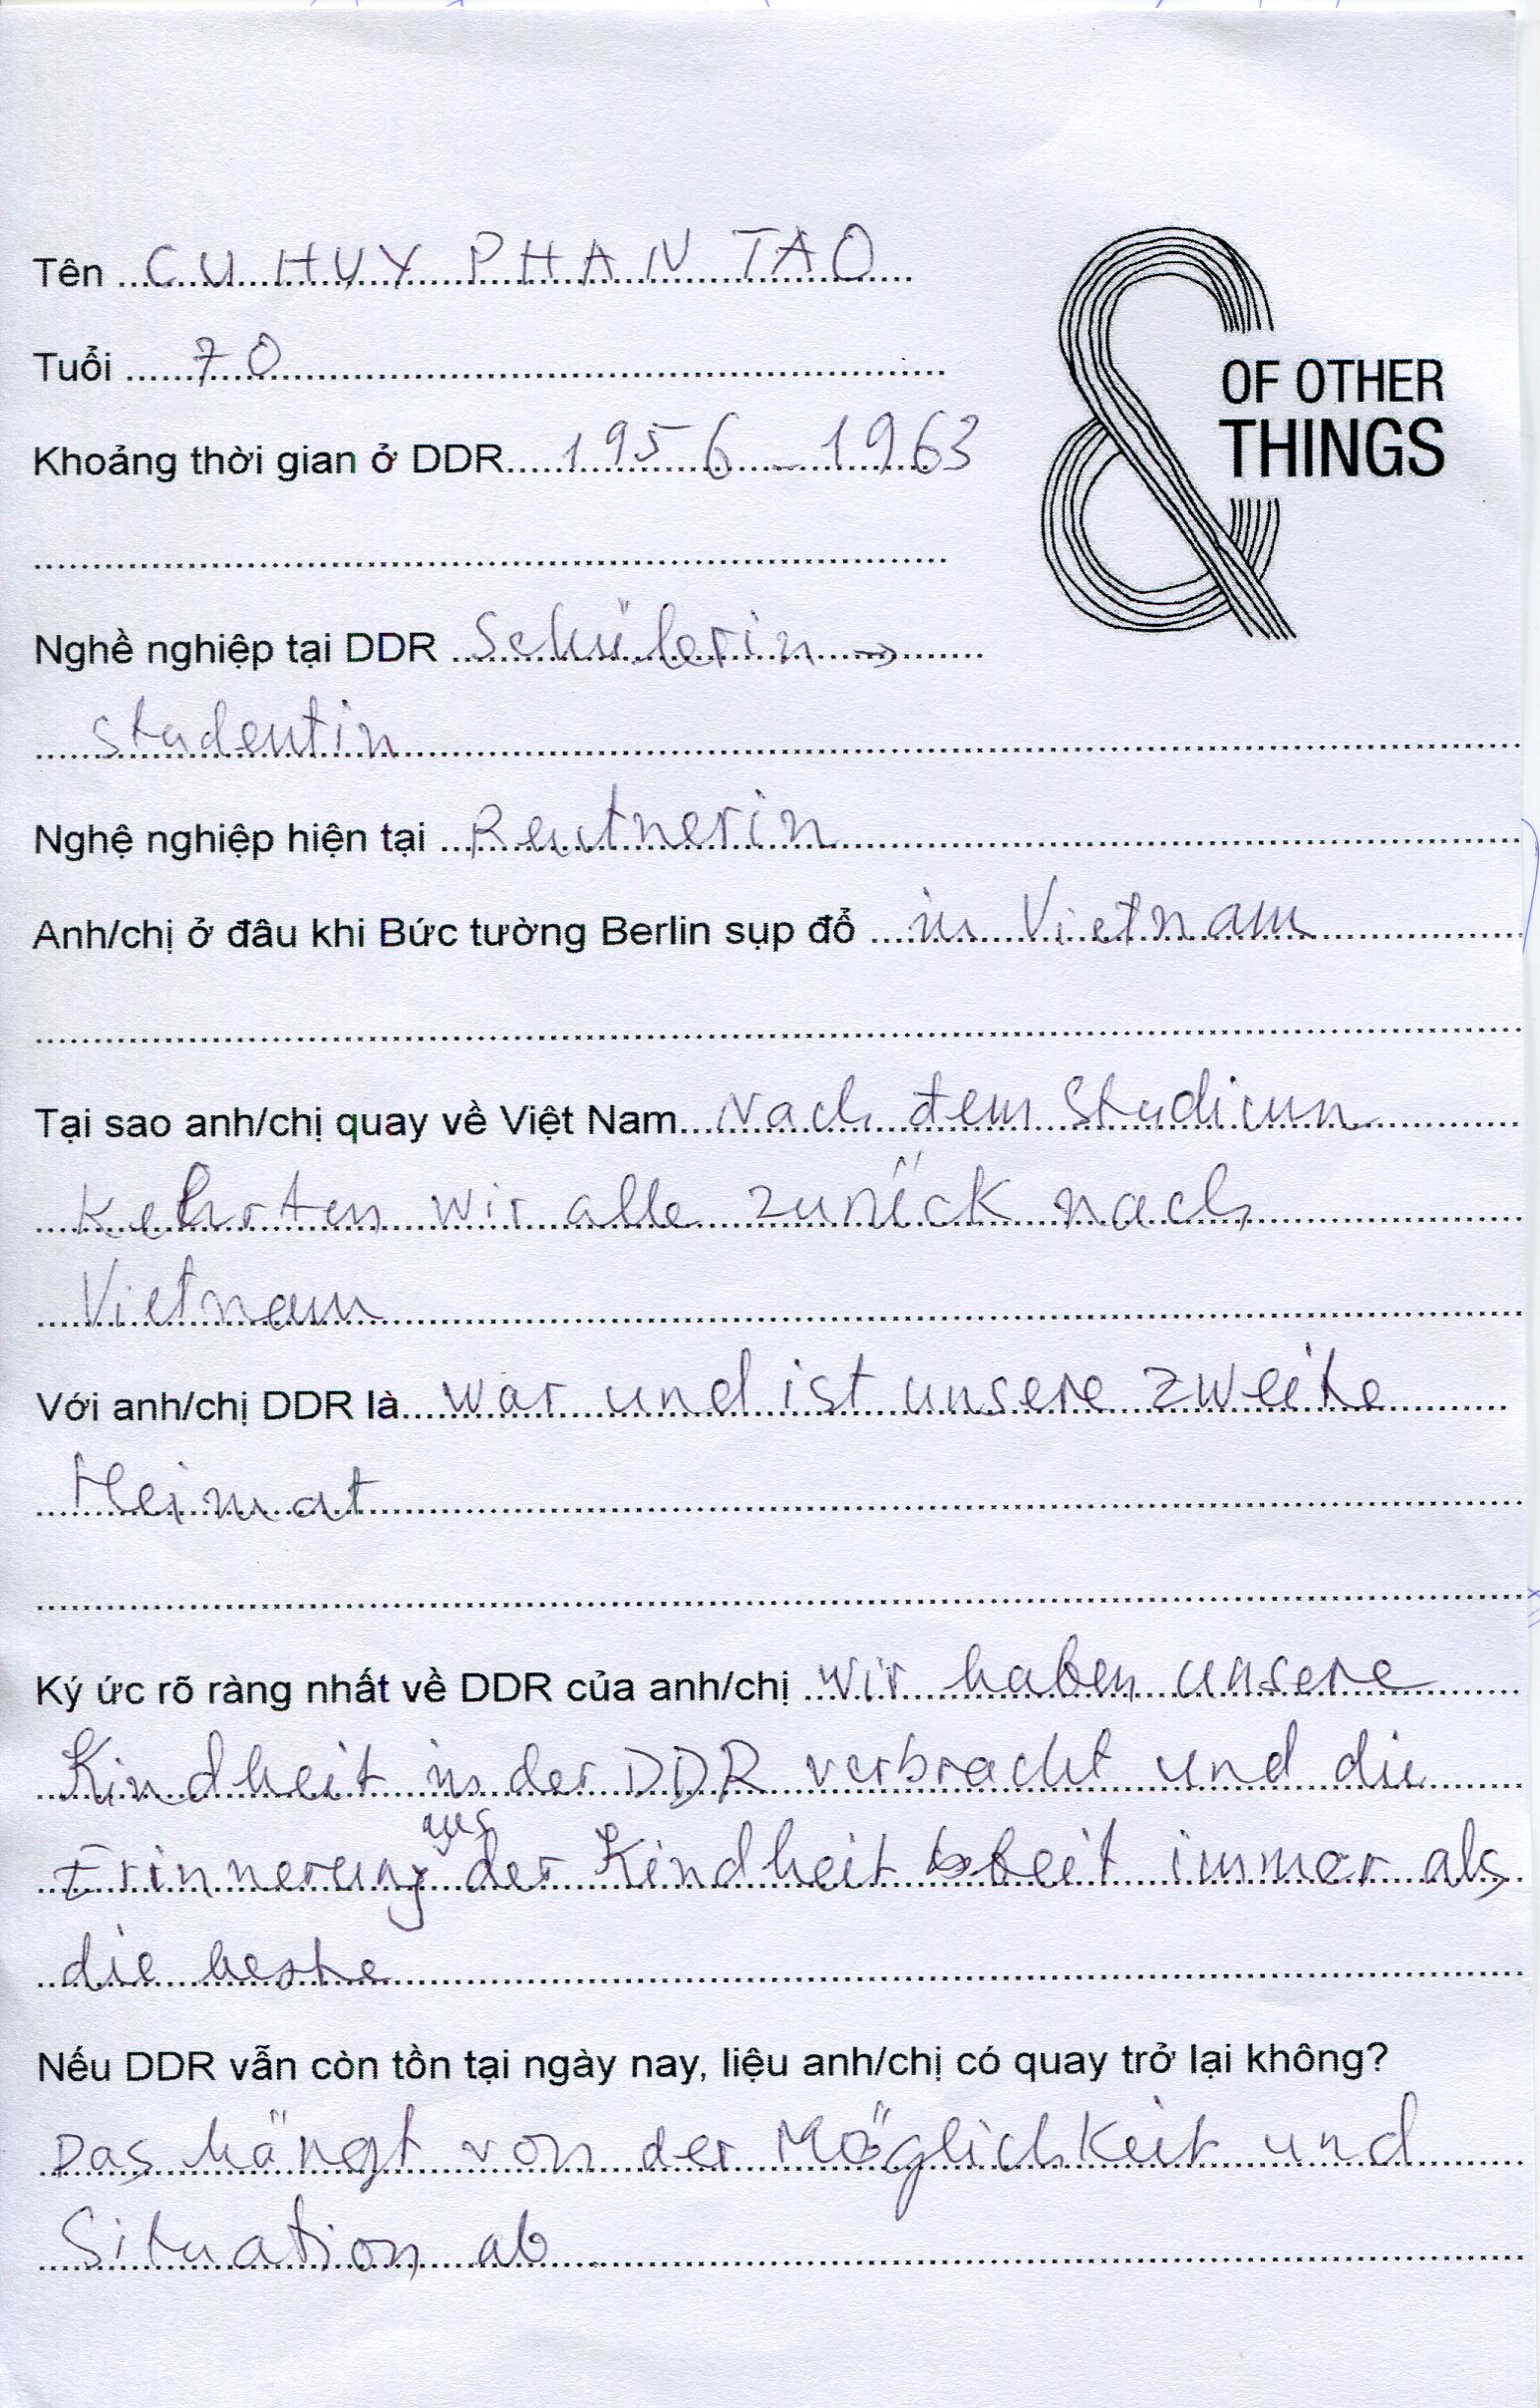 Tên CU HUY PHAN TAO
Tuổi 70
OF OTHER
THINGS
Khoảng thời gian ở DDR 1956 - 1963
Nghề nghiệp tại DDR Schülerin →
Studentin
Nghệ nghiệp hiện tại Rentnerin
Anh/chị ở đâu khi Bức tường Berlin sụp đổ in Vietnam
Tại sao anh/chị quay về Việt Nam Nach dem Studium
kehrten wir alle zurück nach
Vietnam
Với anh/chị DDR là war und ist unsere zweite
Heimat
Ký ức rõ ràng nhất về DDR của anh/chị Wir haben unsere
Kindheit in der DDR verbracht und die
Erinnerung aus der Kindheit immer als
die beste
Nếu DDR vẫn còn tồn tại ngày nay, liệu anh/chị có quay trở lại không?
Das hängt von der Möglichkeit und
Situation ab